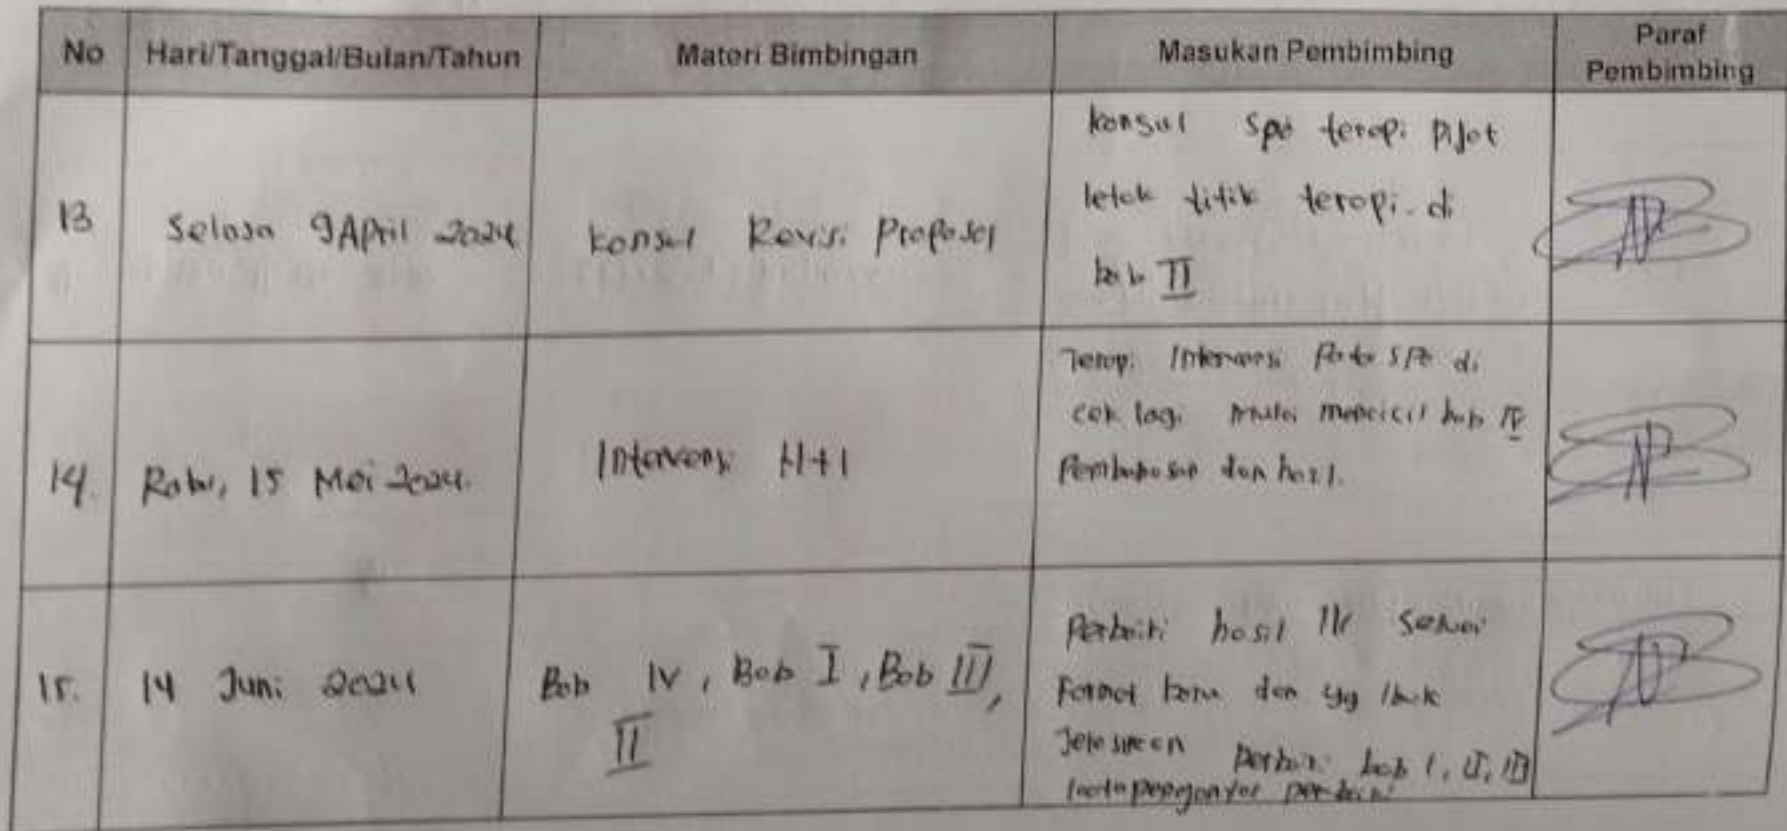 No Hari/Tanggal/Bulan/Tahun Materi Bimbingan Masukan Pembimbing Paraf Pembimbing
13 Selasa 9 April 2024 konsul Revisi Proposal
konsul spo terapi pijat
letak titik terapi di
bab II
14. Rabu, 15 Mei 2024. Intervensi H+1
Terapi Intervensi foto SPO di
cek lagi mulai mencicil bab IV
Pembahasan dan hasil.
15. 14 Juni 2024 Bab IV, Bab I, Bab III,
II
Perbaiki hasil sesuai
Format baru dan yg
Jelaskan perbaiki bab I, II, III
kata pengantar perbaiki